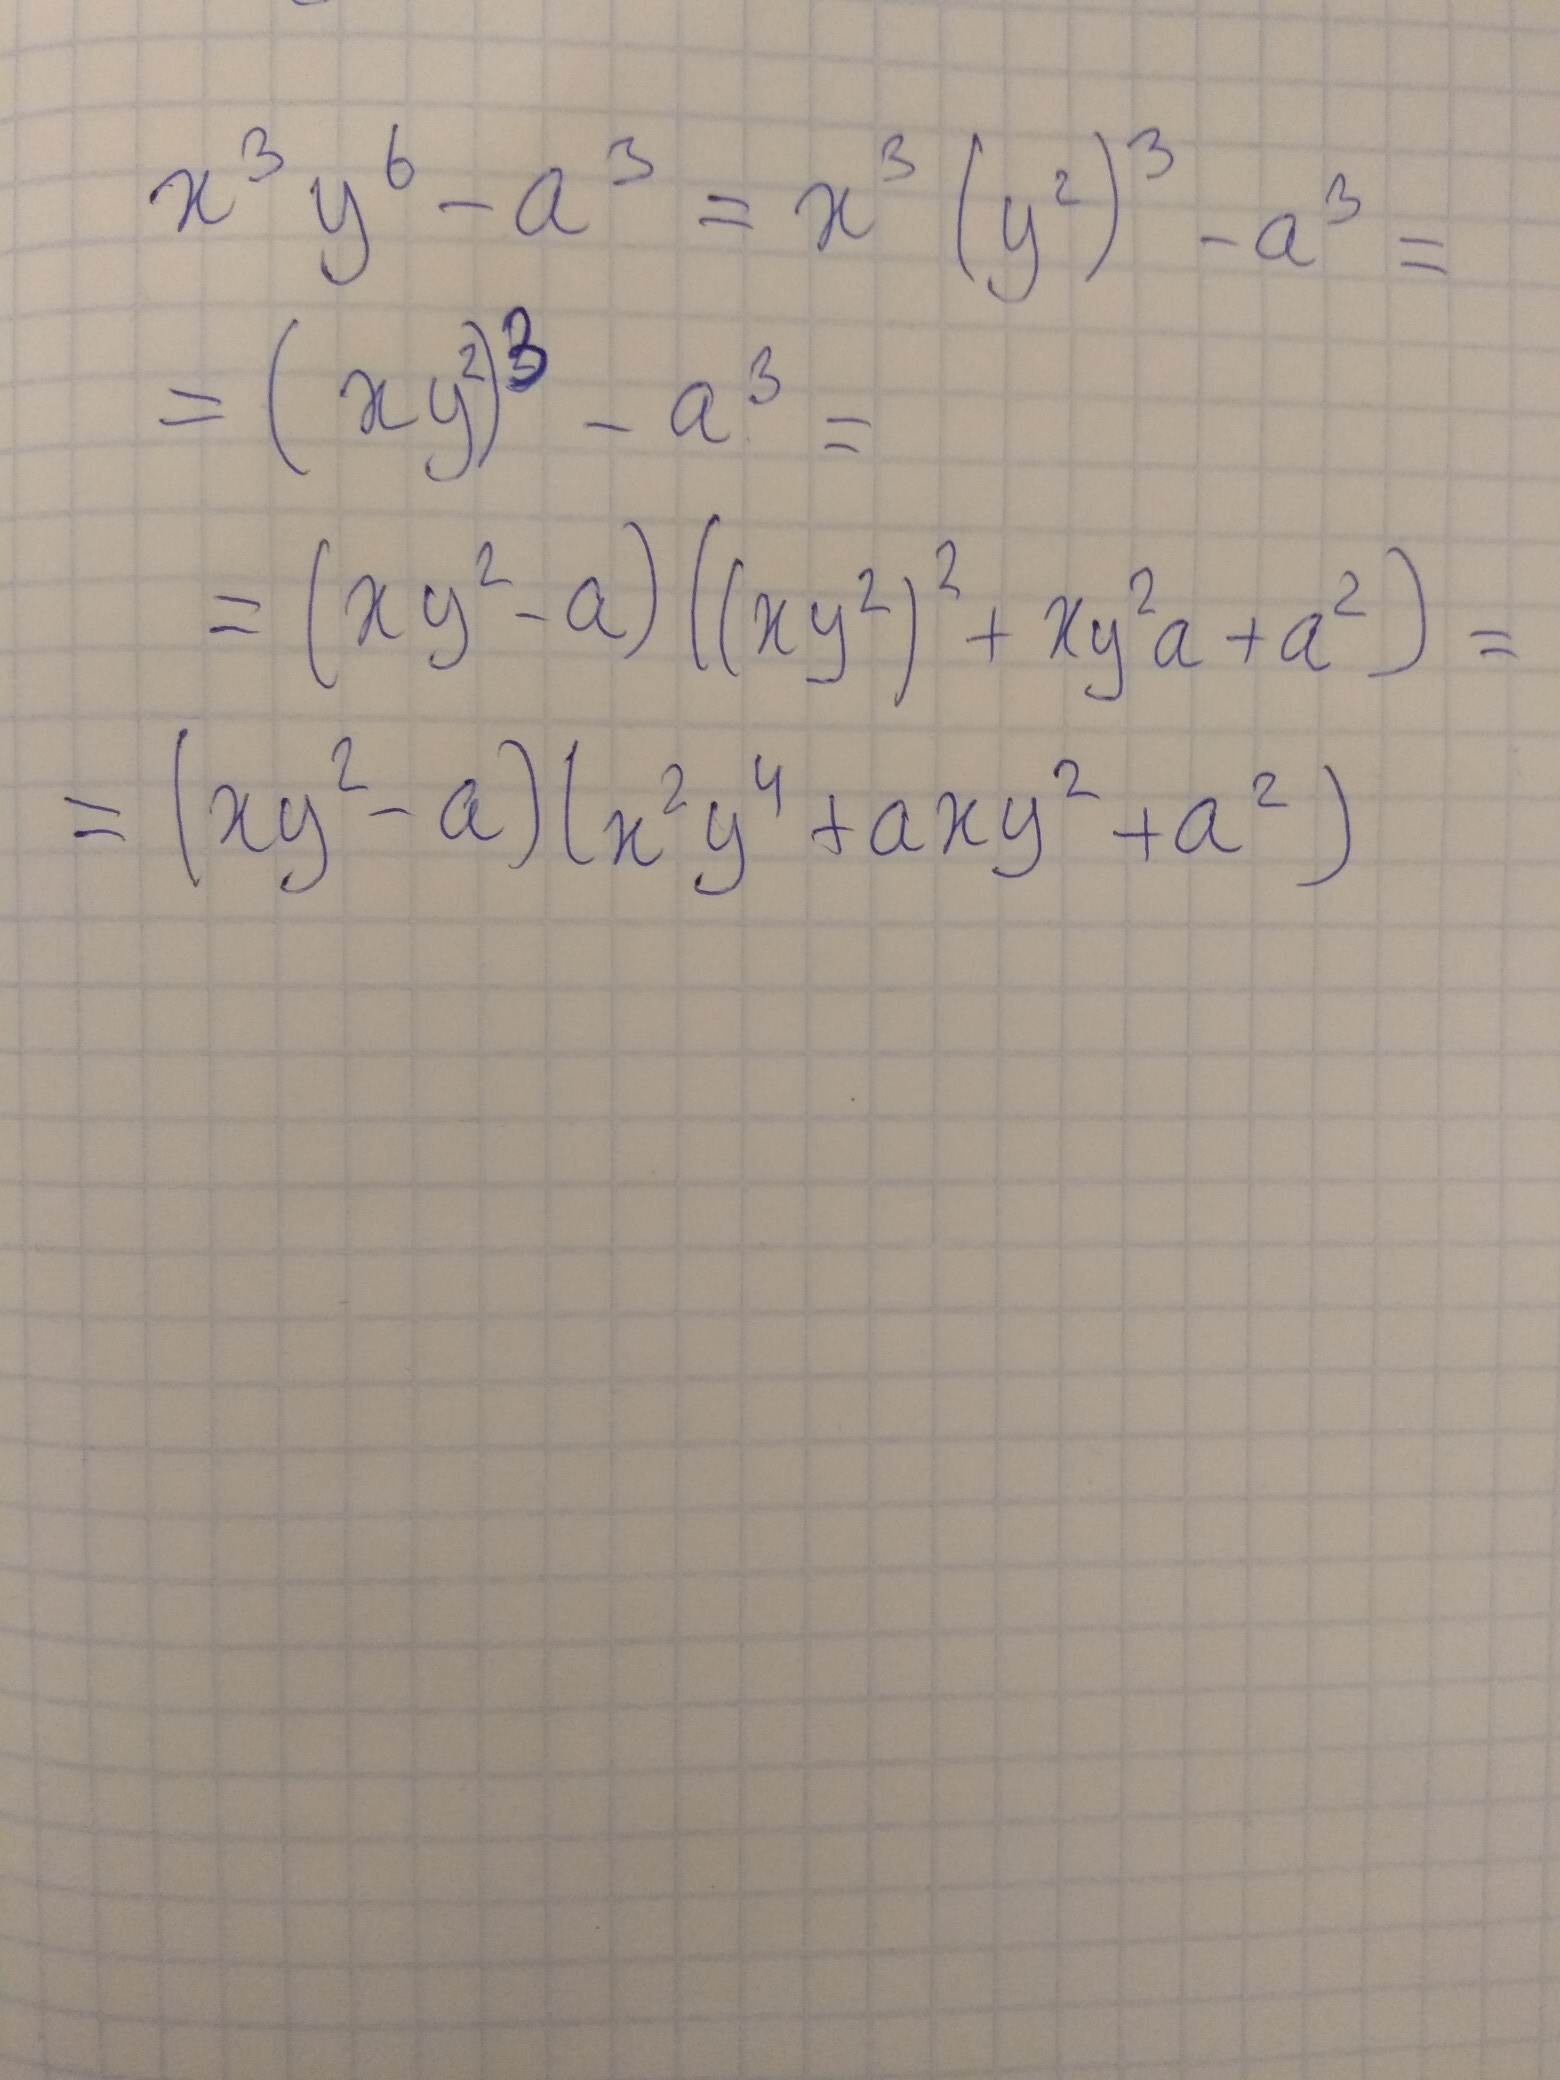 x³y⁶ - a³ = x³(y²)³ - a³ =
= (xy²)³ - a³ =
= (xy² - a)((xy²)² + xy²a + a²) =
= (xy² - a)(x²y⁴ + axy² + a²)